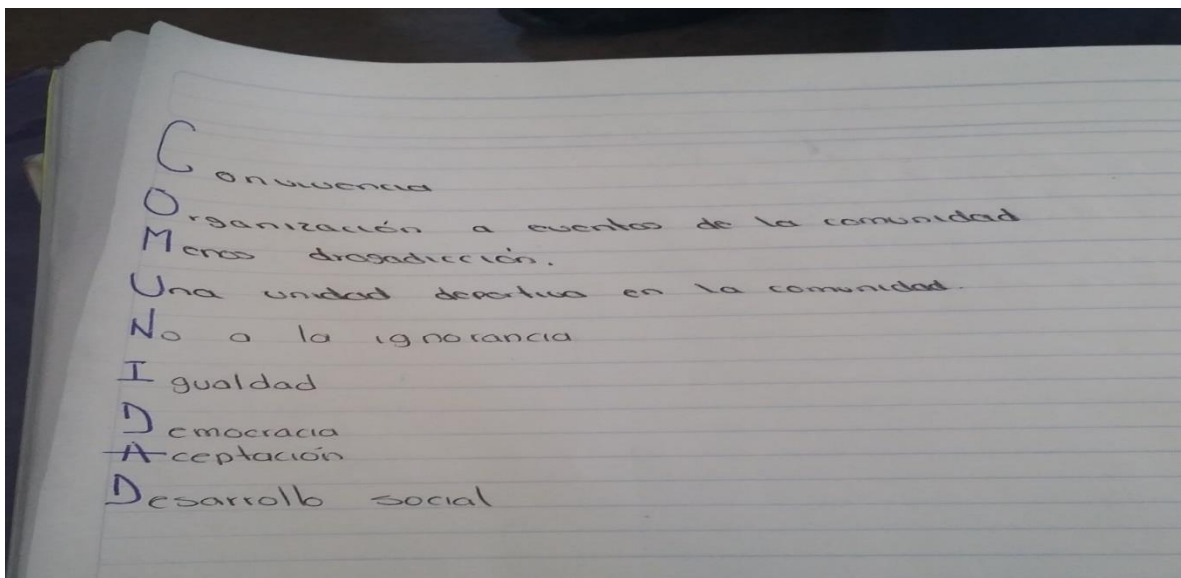 Convivencia
Organización a eventos de la comunidad
Menos drogadicción.
Una unidad deportiva en la comunidad.
No a la ignorancia
Igualdad
Democracia
Aceptación
Desarrollo social